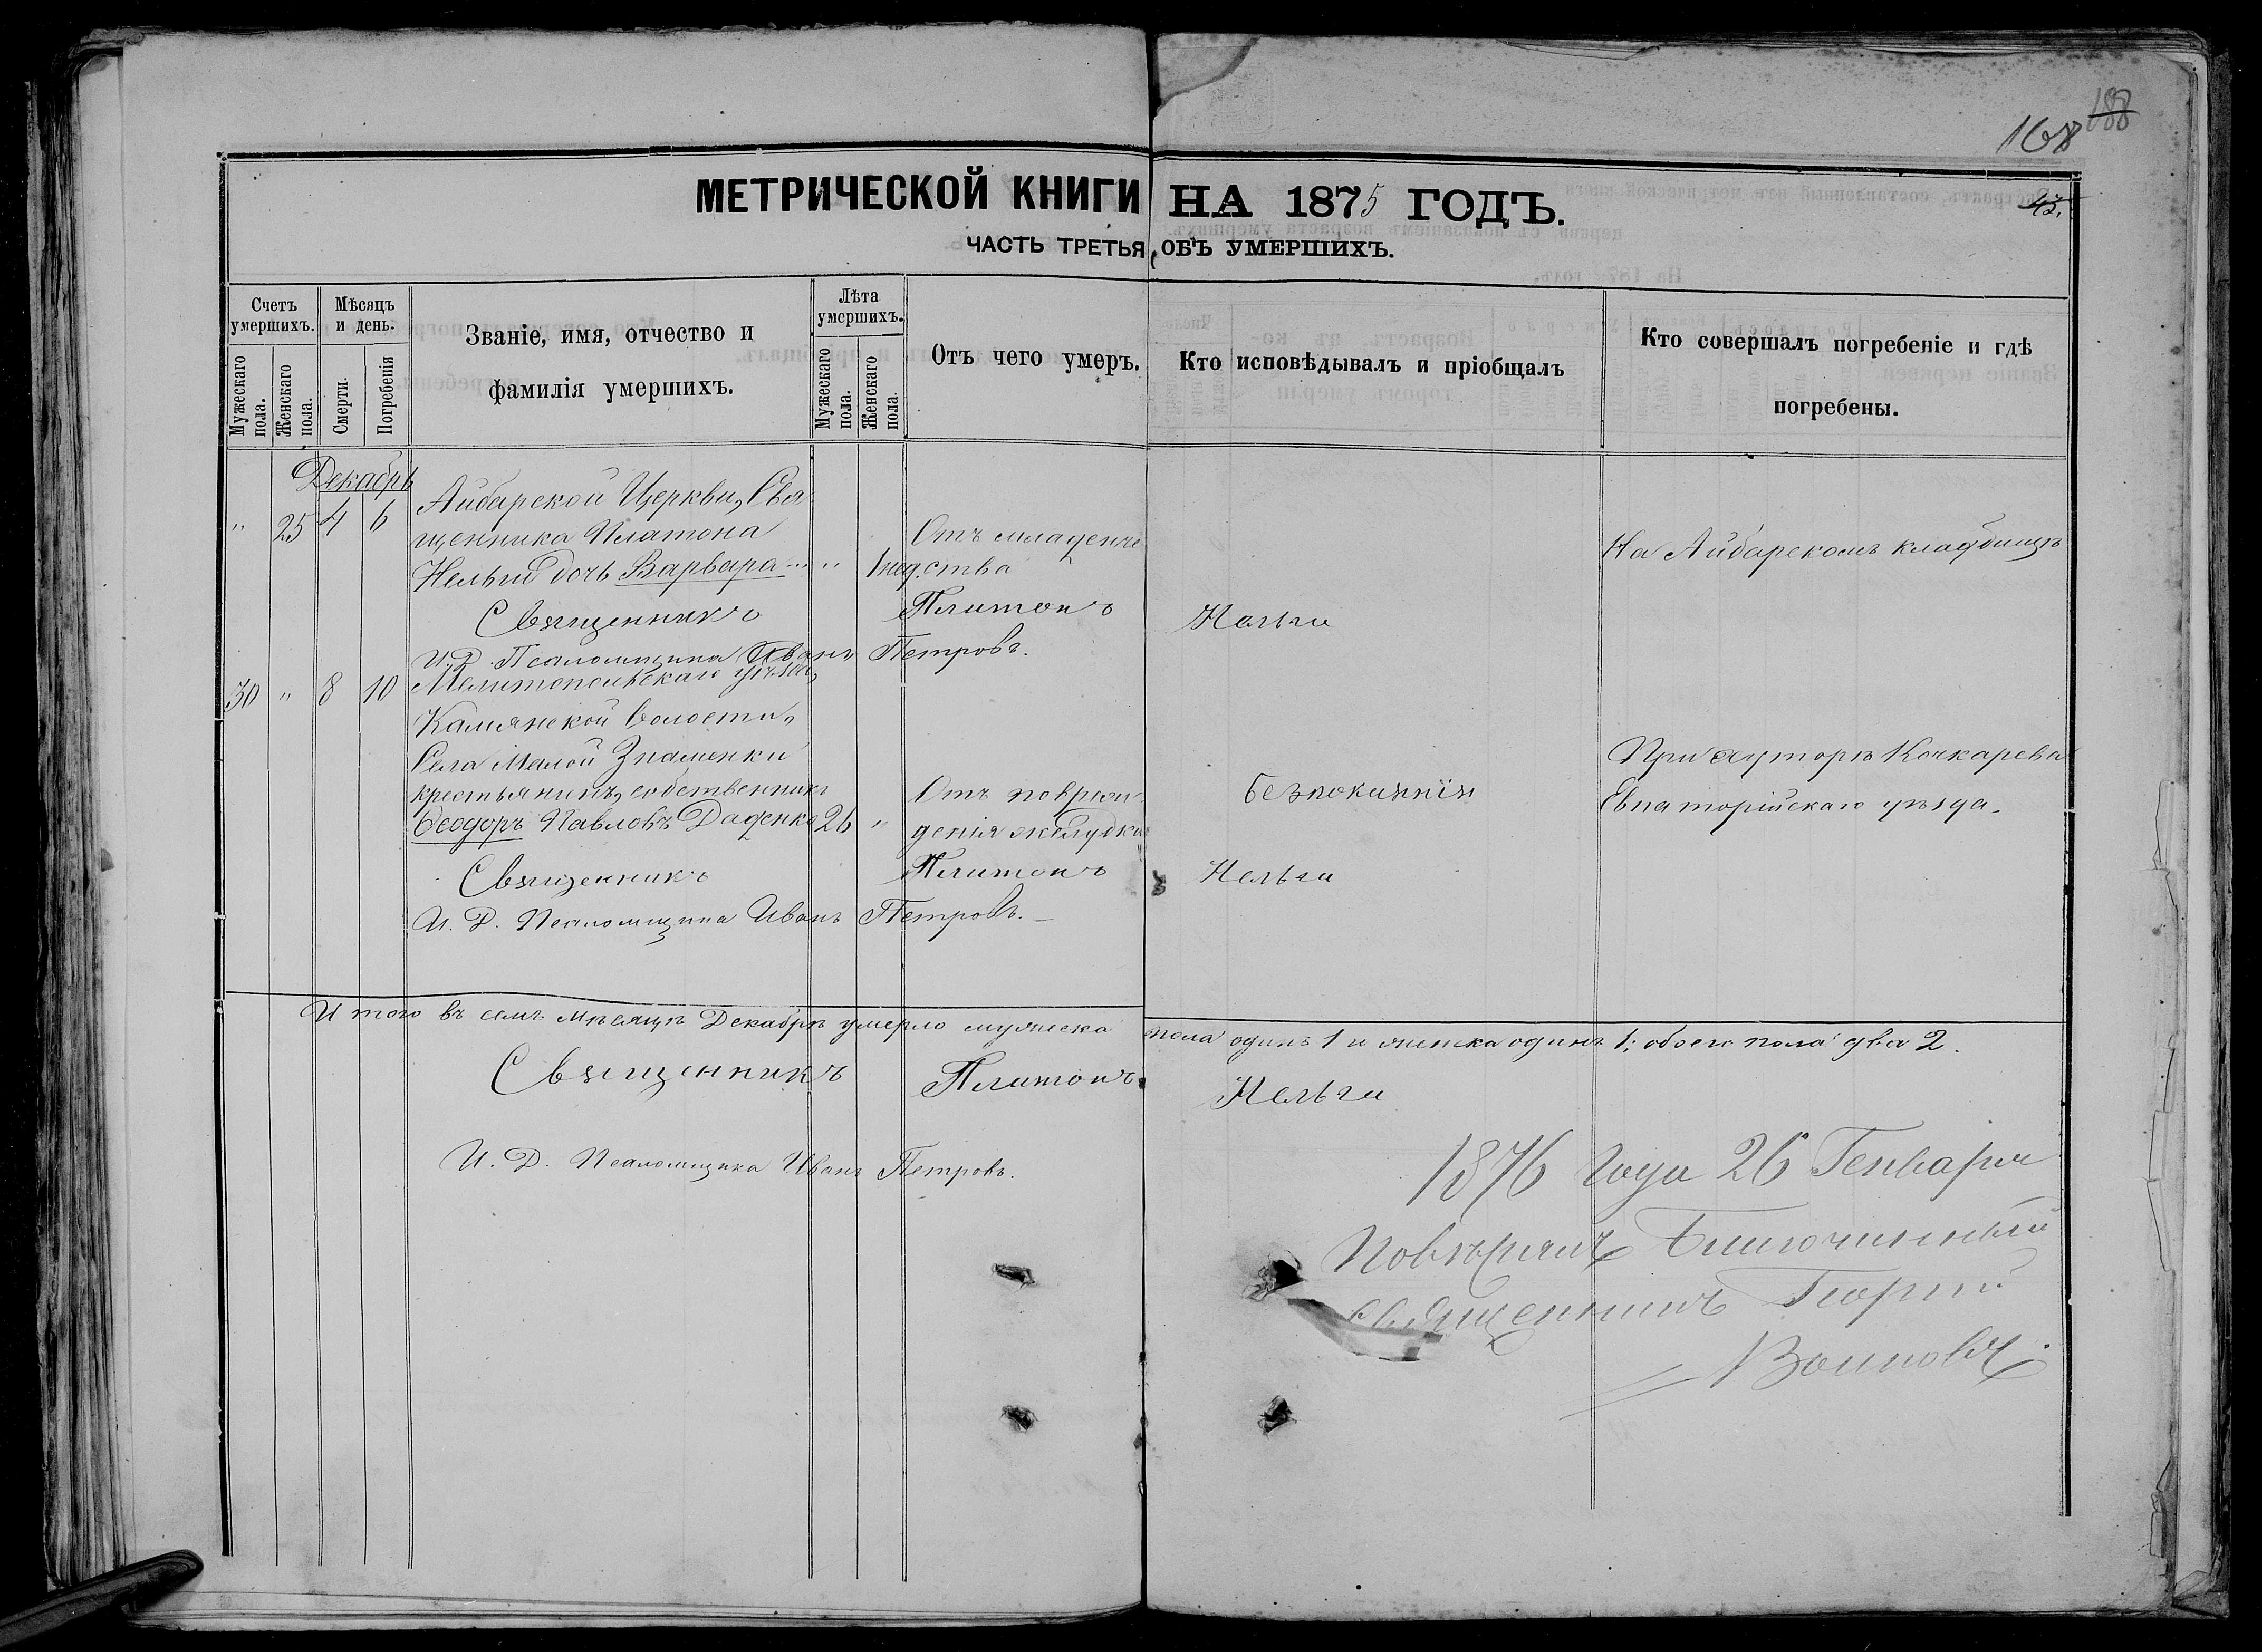 188
168
МЕТРИЧЕСКОЙ КНИГИ НА 1875 ГОДЪ.
43.
ЧАСТЬ ТРЕТЬЯ, ОБЪ УМЕРШИХЪ.
Счетъ умершихъ.
Мѣсяцъ и день.
Званіе, имя, отчество и фамилія умершихъ.
Лѣта умершихъ.
Отъ чего умеръ.
Кто исповѣдывалъ и пріобщалъ
Кто совершалъ погребеніе и гдѣ погребены.
Мужескаго пола.
Женскаго пола.
Смерти.
Погребенія
Мужескаго пола.
Женскаго пола.
Декабрь
" 25 4 6 Айбарской Церкви, Свя
щенника Платона Отъ младенче На Айбарскомъ кладбищѣ
Нельги дочь Варвара " 1 нед. ства
Священникъ Платонъ Нельги
И. Д. Псаломщика Иванъ Петровъ.
30 " 8 10 Мелитопольскаго уѣзда,
Камянской волости,
Села Малой Знаменки При хуторѣ Кочкарева
крестьянинъ, собственникъ Отъ повреж безпокаянія Евпаторійскаго уѣзда.
Ѳеодоръ Павловъ Даценко 26 " денія желудка
Священникъ Платонъ Нельги
И. Д. Псаломщика Иванъ Петровъ.
Итого въ семъ мѣсяцѣ Декабрѣ умерло мужеска пола одинъ 1 и женска одинъ 1; обоего пола два 2.
Священникъ Платонъ Нельги
И. Д. Псаломщика Иванъ Петровъ.
1876 года 26 Генваря
Повѣрялъ Благочинный
Священникъ Георгій